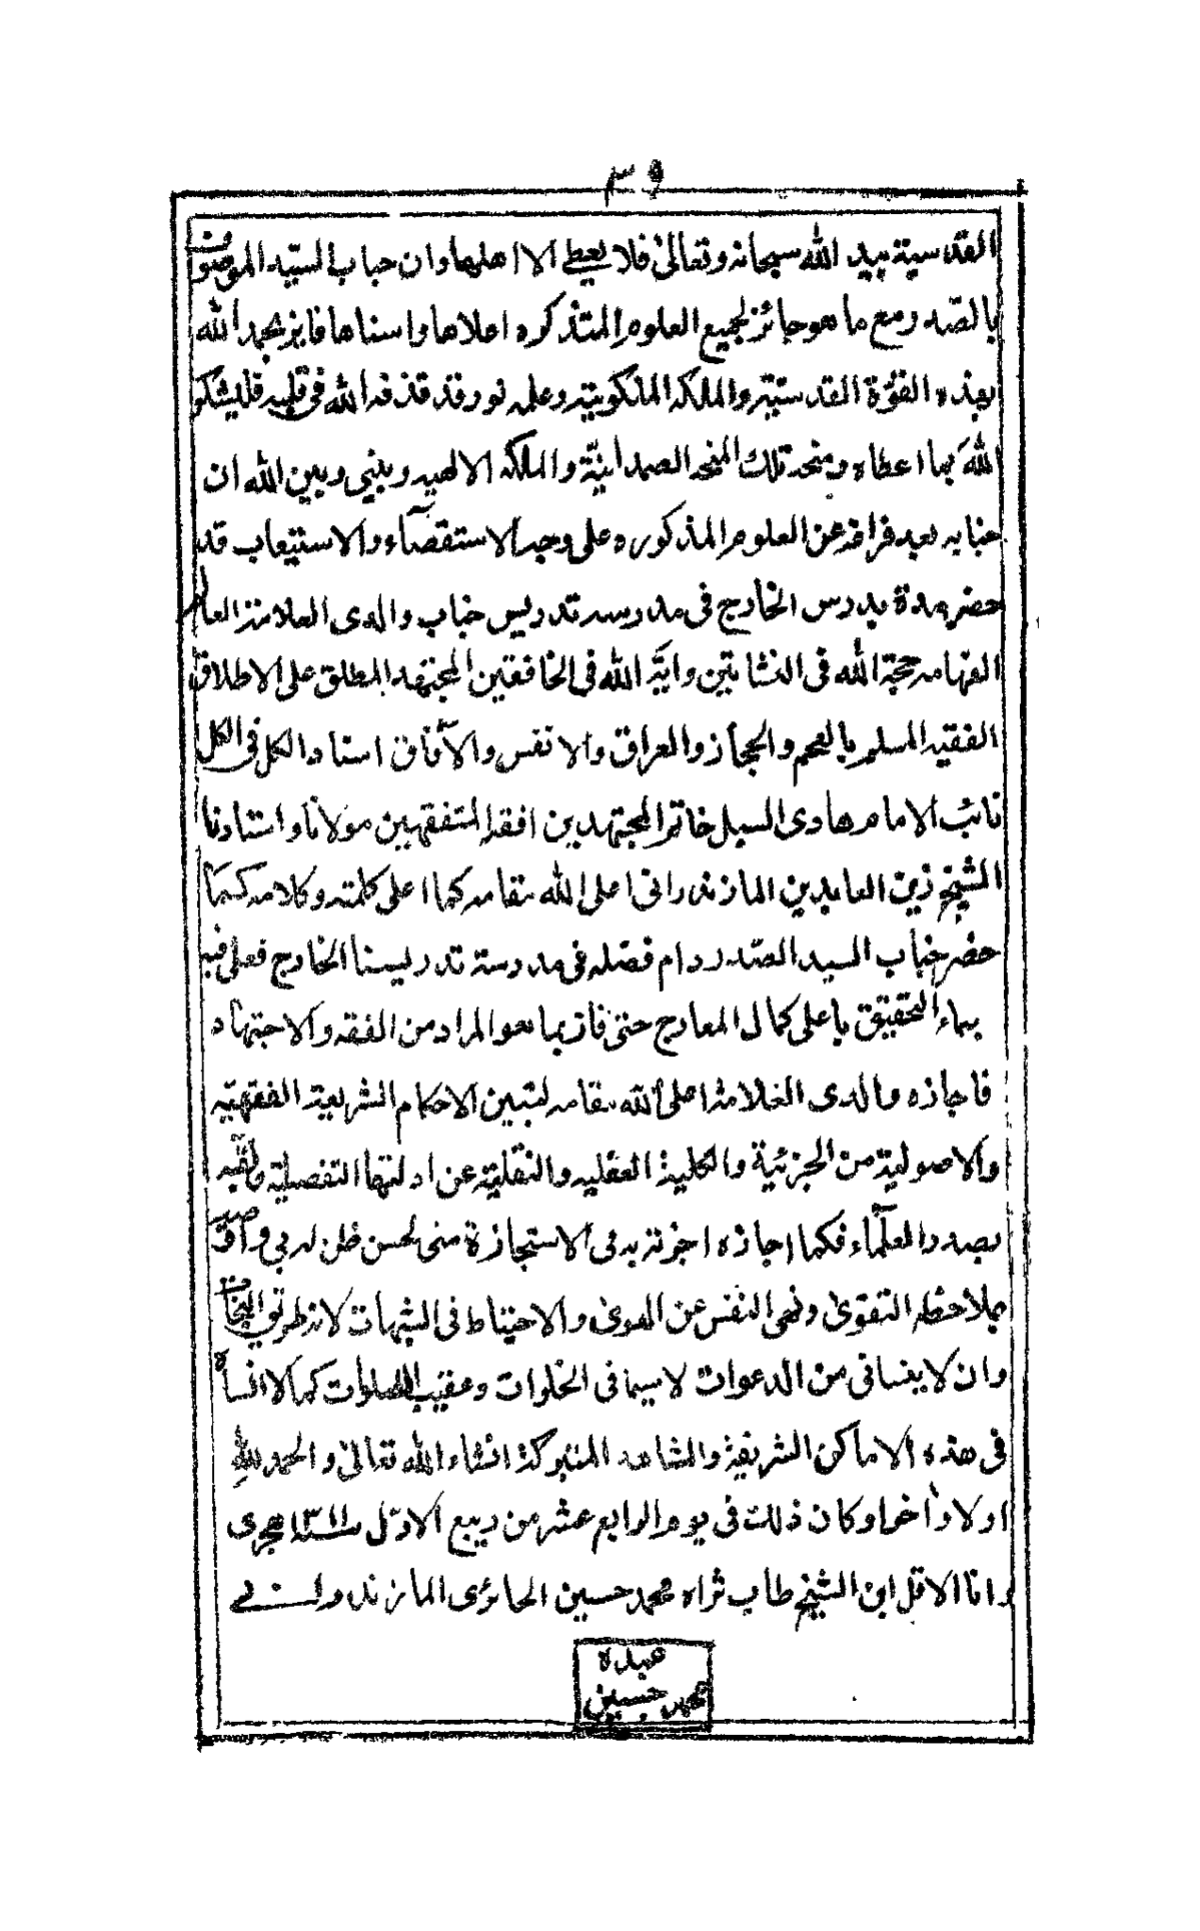 ٣٩
القدسية بيد الله سبحانه وتعالى فلا يعطى الا اهلها وان جناب السيد الموصوف
بالصّدر مع ما هو حائز لجميع العلوم المتذكره اعلاها واسناها فايز بحمد الله
بهذه القوّة القدسيّة والملكه الملكوتية وعلمه نور قد قذفه الله فى قلبه فليشكر
اللهَ بما اعطاه ومنحه تلك المنحه الصمدانيّة والملكه الالهيه وبينى وبين الله ان
جنابه بعد فراغه عن العلوم المذكوره على وجه الاستقصآء والاستيعاب قد
حضر مدة بدرس الخارج فى مدرسه تدريس جناب والدى العلامة العالم
الفهامه حجة الله فى النشاتين واية الله فى الخافقين المجتهد المطلق على الاطلاق
الفقيه المسلم بالعجم والحجاز والعراق والانفس والآفاق استاد الكل فى الكل
نائب الامام هادى السبل خاتم المجتهدين افقه المتفقهين مولانا واستادنا
الشيخ زين العابدين المازندرانى اعلى الله مقامه كما اعلى كلمته وكلامه كما
حضر جناب السيد الصّدر دام فضله فى مدرسة تدريسنا الخارج فعلى فيه
بماء التحقيق باعلى كمال المعارج حتى فاز بما هو المراد من الفقه والاجتهاد
فاجازه والدى العلامة اعلى الله مقامه لتبين الاحكام الشريعة الفقهيّه
والاصولية من الجزئية والكلية العقليه والنقلية عن ادلتها التفصيلية ولقبه
بصدر العلمآء فكما اجازه اجزته بدئ الاستجازة منى لحسن ظنه بى و
بملاحظه التقوى ونهى النفس عن الهوى والاحتياط فى الشبهات لانه طريق النجاة
وان لا ينسانى من الدعوات لا سيما فى الخلوات وعقيب الصلوات كما لا انساه
فى هذه الاماكن الشريفة والمشاهد المتبركة انشاء الله تعالى والحمد للّهِ
اولا وآخرا وكان ذلك فى يوم الرابع عشر من ربيع الاوّل سنة ١٣١١ هجرى
وانا الاقل ابن الشيخ طاب ثراه محمد حسين الحائرى المازندرانى
عبده
محمد حسين